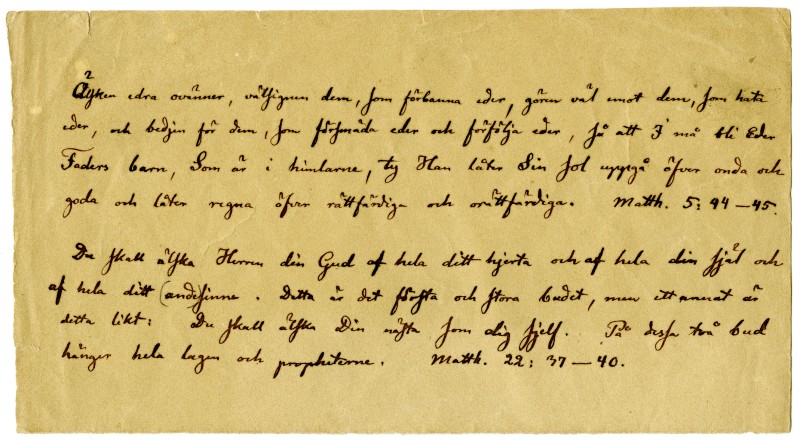 Älsken edra ovänner, välsignen dem, som förbanna eder, gören väl emot dem, som hata
eder, och bedjen för dem, som försmäda eder och förfölja eder, så att I må bli Eder
Faders barn, Som är i himlarne, ty Han låter Sin sol uppgå öfver onda och
goda och låter regna öfver rättfärdiga och orättfärdiga. Matth. 5: 44—45.
Du skall älska Herren din Gud af hela ditt hjerta och af hela din själ och
af hela ditt (ande)sinne. Detta är det första och stora budet, men ett annat är
detta likt: Du skall älska Din nästa som dig sjelf. På dessa två bud
hänger hela lagen och propheterne. Matth. 22: 37—40.